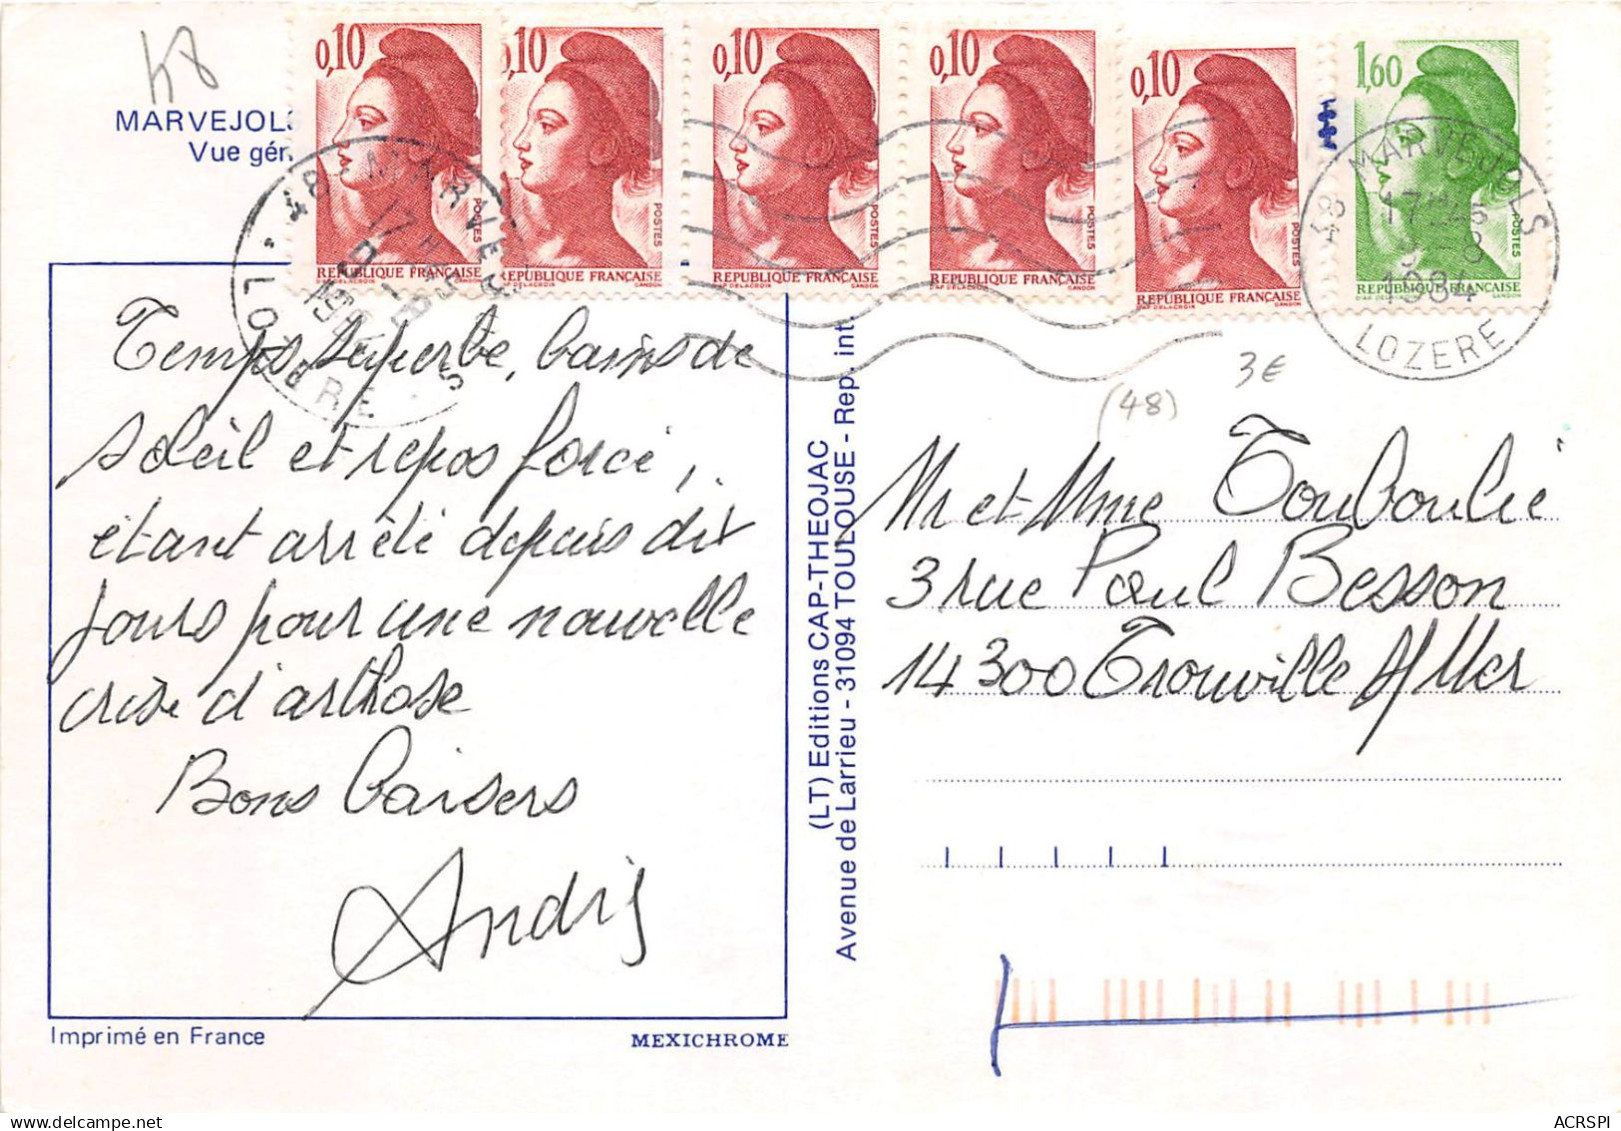 48
MARVEJOLS
Vue gén
0,10
POSTES
REPUBLIQUE FRANÇAISE
0,10
POSTES
REPUBLIQUE FRANÇAISE
0,10
POSTES
REPUBLIQUE FRANÇAISE
0,10
POSTES
REPUBLIQUE FRANÇAISE
0,10
POSTES
REPUBLIQUE FRANÇAISE
1,60
POSTES
REPUBLIQUE FRANÇAISE
48 MARVEJOLS
LOZERE
48 MARVEJOLS
17H
1984
LOZERE
Temps superbe, bains de
soleil et repos forcé,
étant arrêté depuis dix
jours pour une nouvelle
crise d'arthrose
Bons baisers
André
(LT) Editions CAP-THEOJAC
Avenue de Larrieu - 31094 TOULOUSE - Rep. int.
3€
(48)
Mr et Mme Touboulic
3 rue Paul Besson
14300 Trouville s/Mer
Imprimé en France
MEXICHROME
ACRSPI